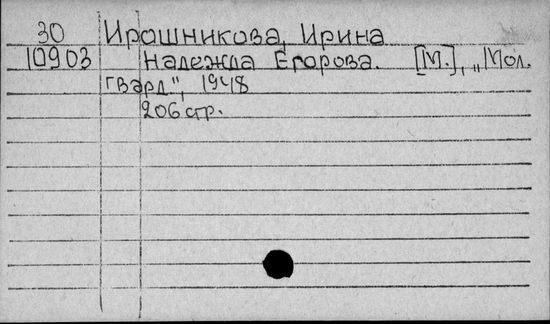 30 Ирошникова, Ирина
10903 Надежда Егорова. [М.], „Мол.
гвард", 1948
206 стр.